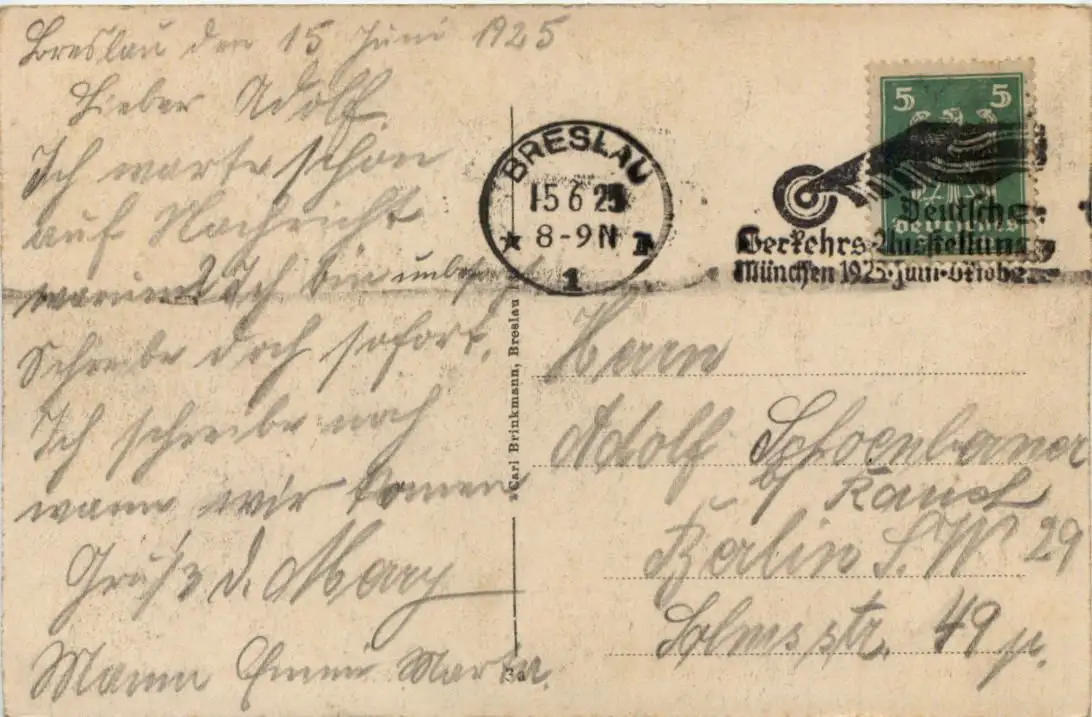 Breslau den 15 Juni 1925
Lieber Adolf
Ich warte schon
auf Nachricht
warum? Ich bin unbesorgt
Schreibe doch sofort.
Ich schreibe noch
wann wir komen
Grüße d. Mary
Mann Emmi Marta.
BRESLAU
15 6 25
8-9 N
1
5 5
Deutsche
Verkehrs-Ausstellung
München 1925·Juni-Oktober
Carl Brinkmann, Breslau
Herrn
Adolf Schoenberner
b/ Rauch
Berlin S.W 29
Solmsstr. 49 p.